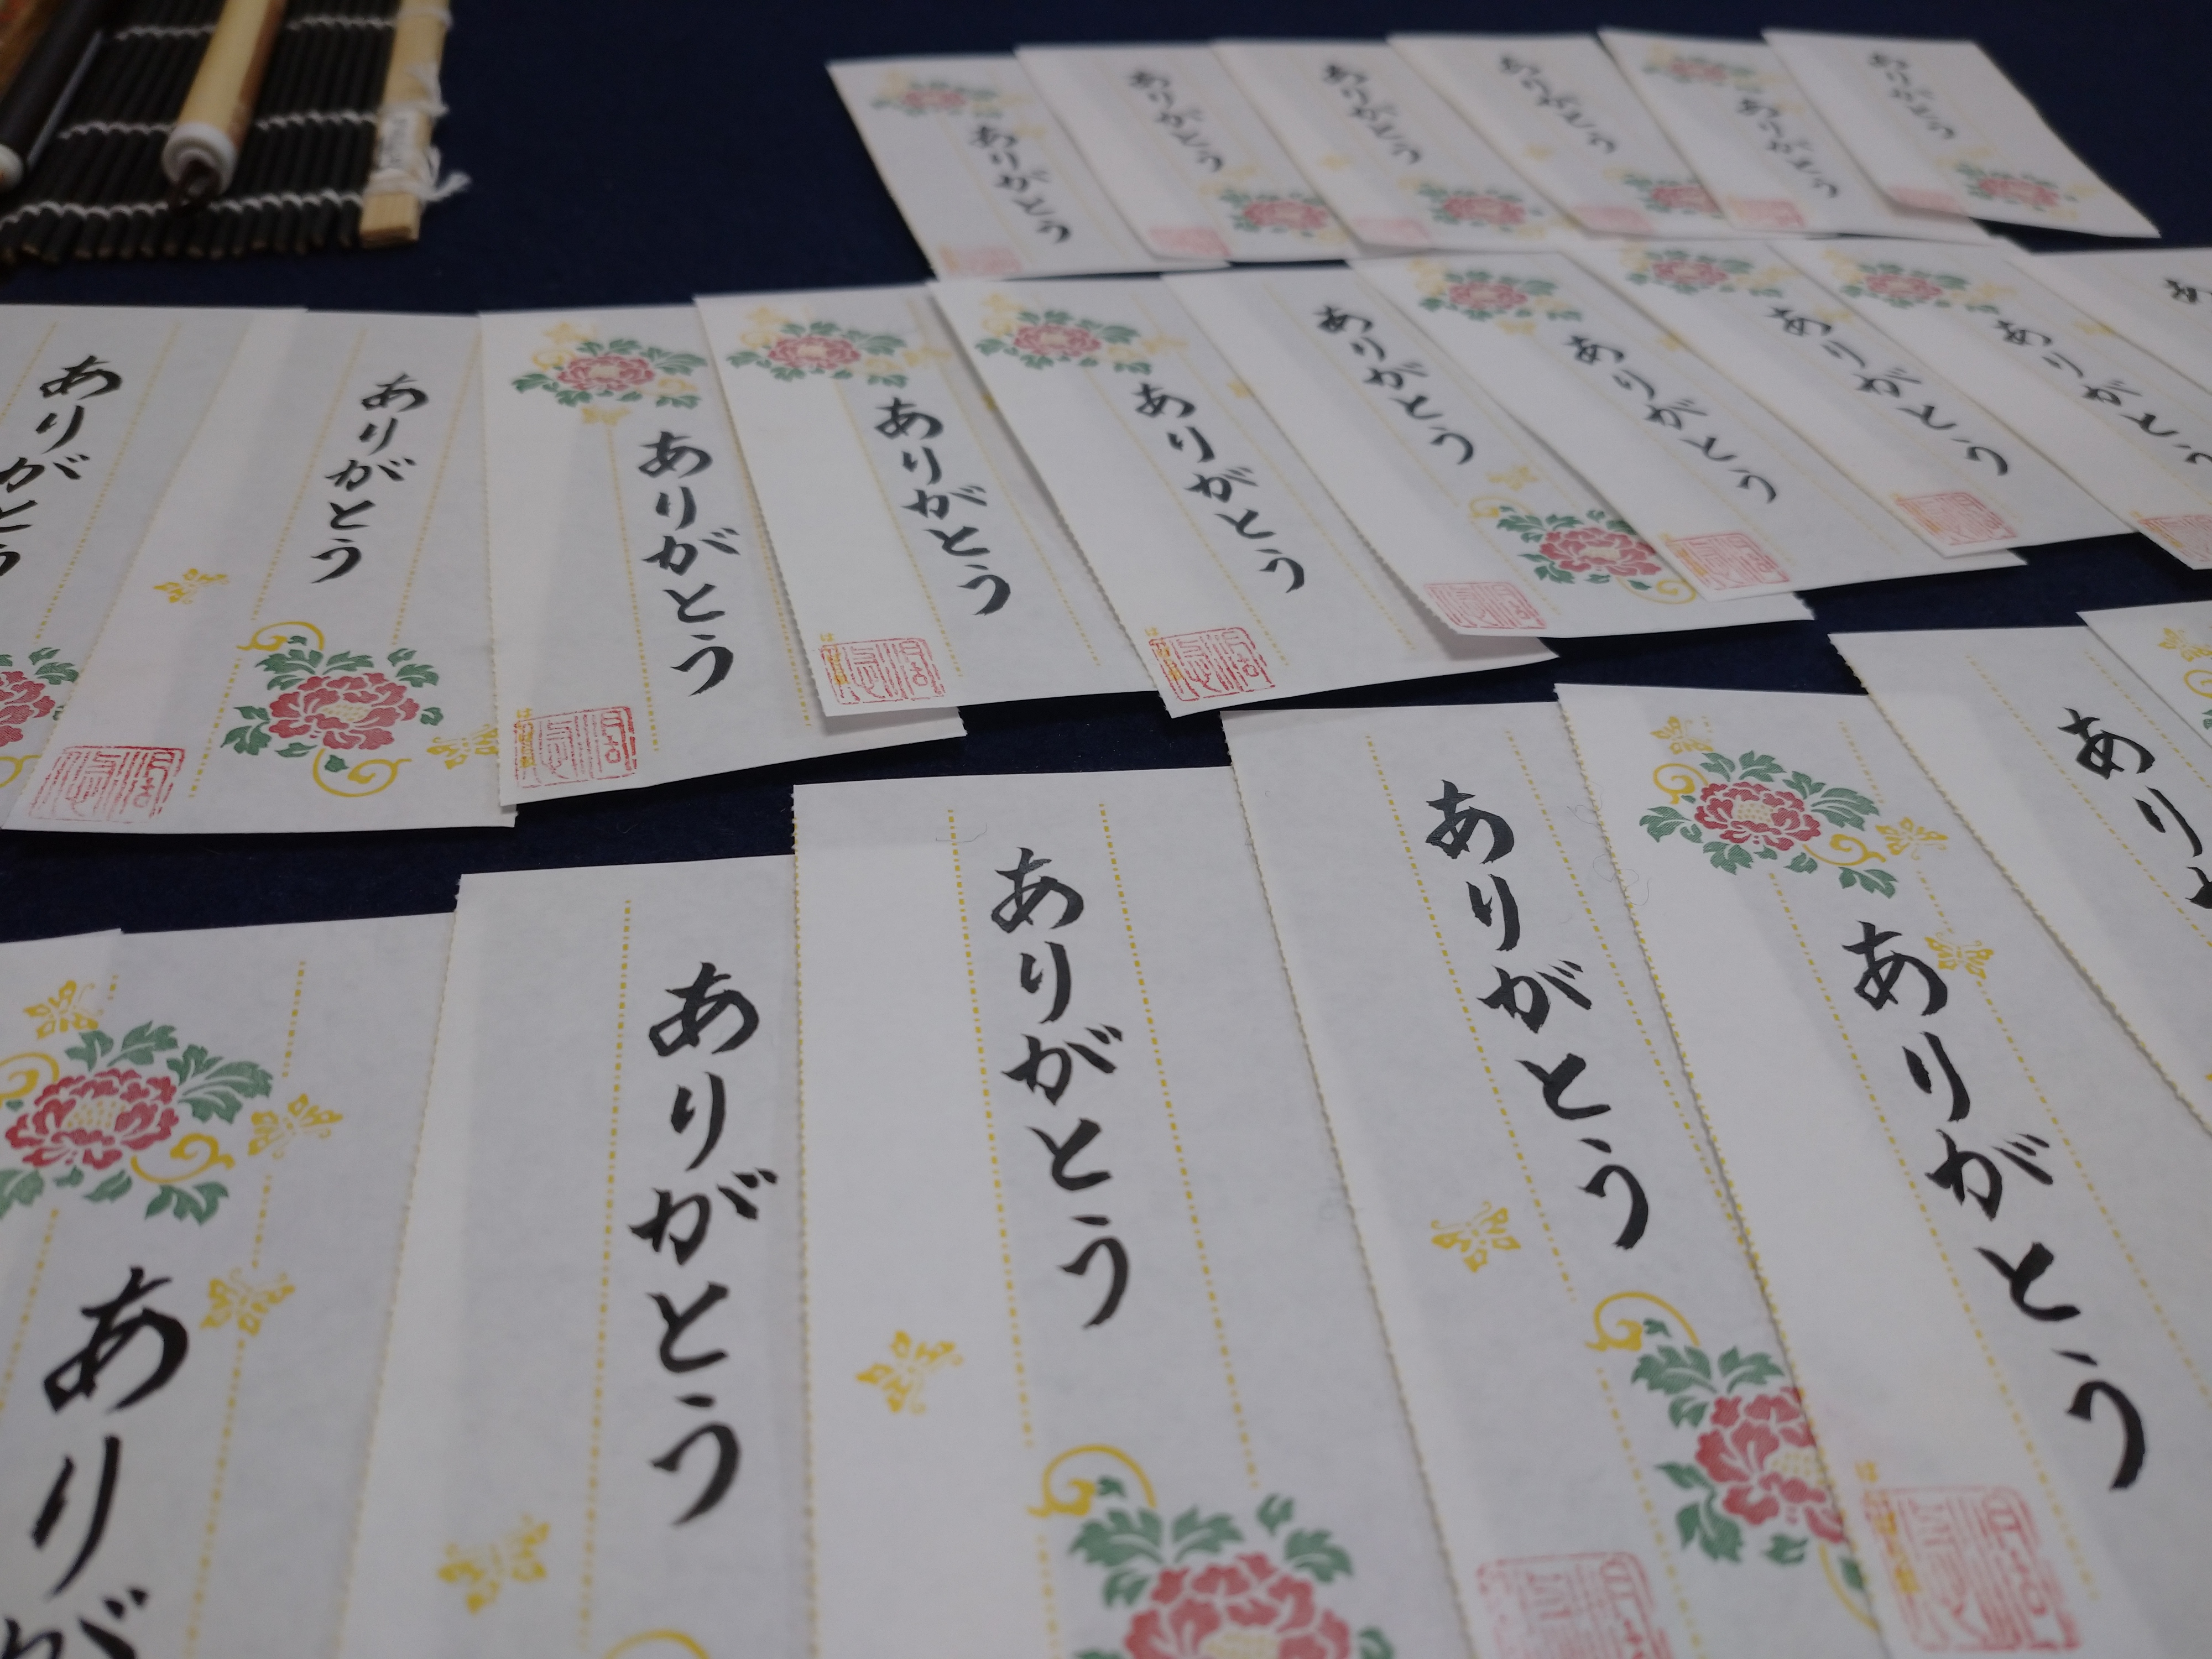 ありがとう
ありがとう
ありがとう
ありがとう
ありがとう
ありがとう
ありがとう
ありがとう
ありがとう
ありがとう
ありがとう
ありがとう
ありがとう
ありがとう
ありがとう
あ
ありが
ありがとう
ありがとう
ありがとう
ありがとう
あり